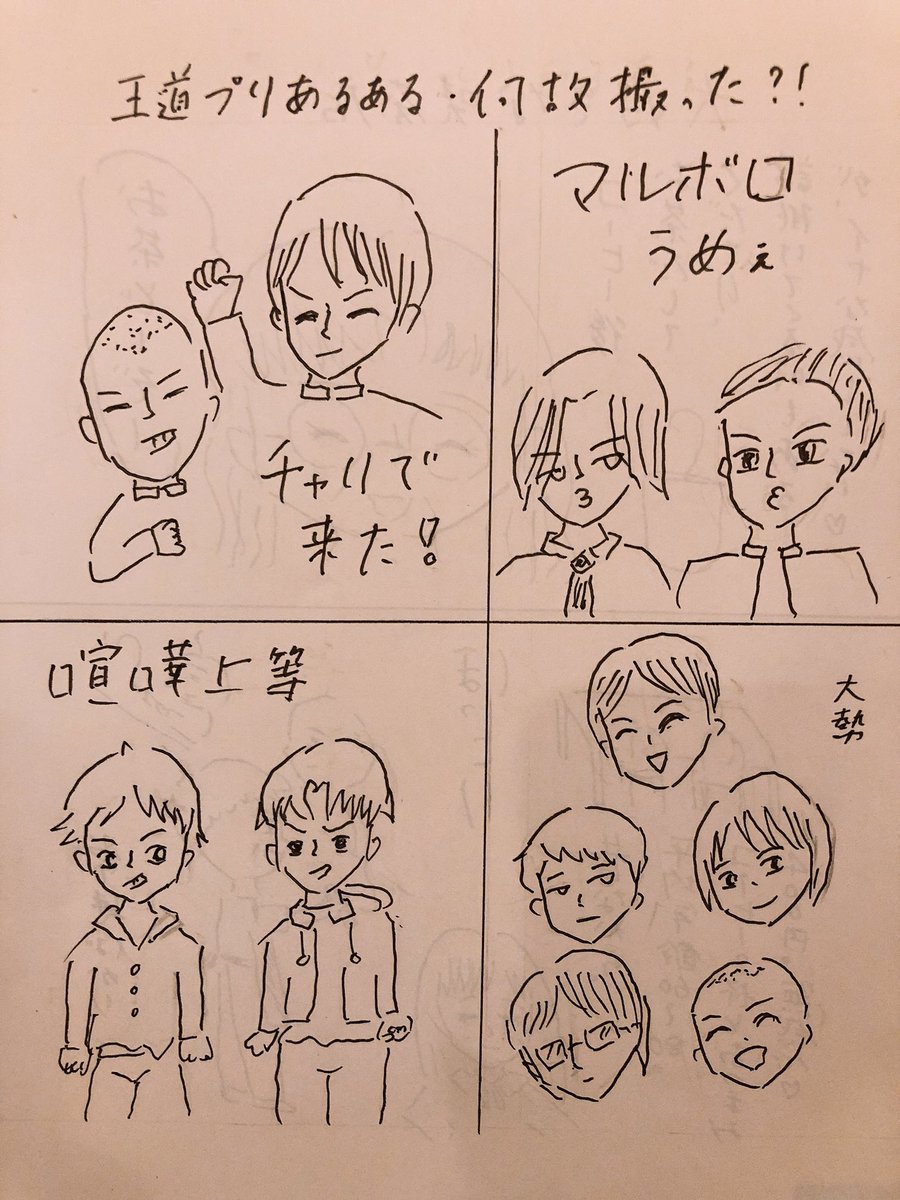 王道プリあるある・何故撮った?!
チャリで
来た!
マルボロ
うめぇ
喧嘩上等
大勢